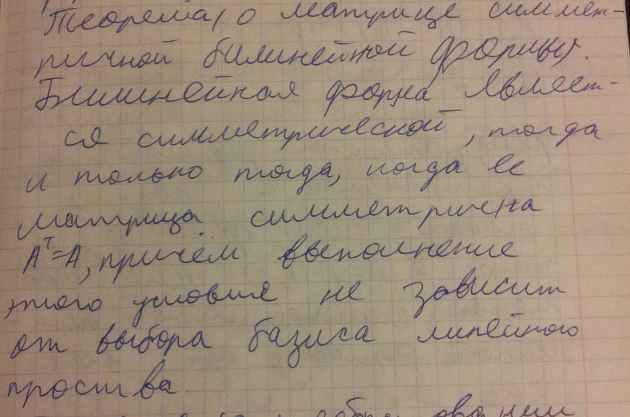 Теорема, о матрице симмет-
ричной билинейной формы.
Билинейная форма являет-
ся симметрической, тогда
и только тогда, когда ее
матрица симметрична
Aᵀ=A, причём выполнение
этого условия не зависит
от выбора базиса линейного
простр-ва.